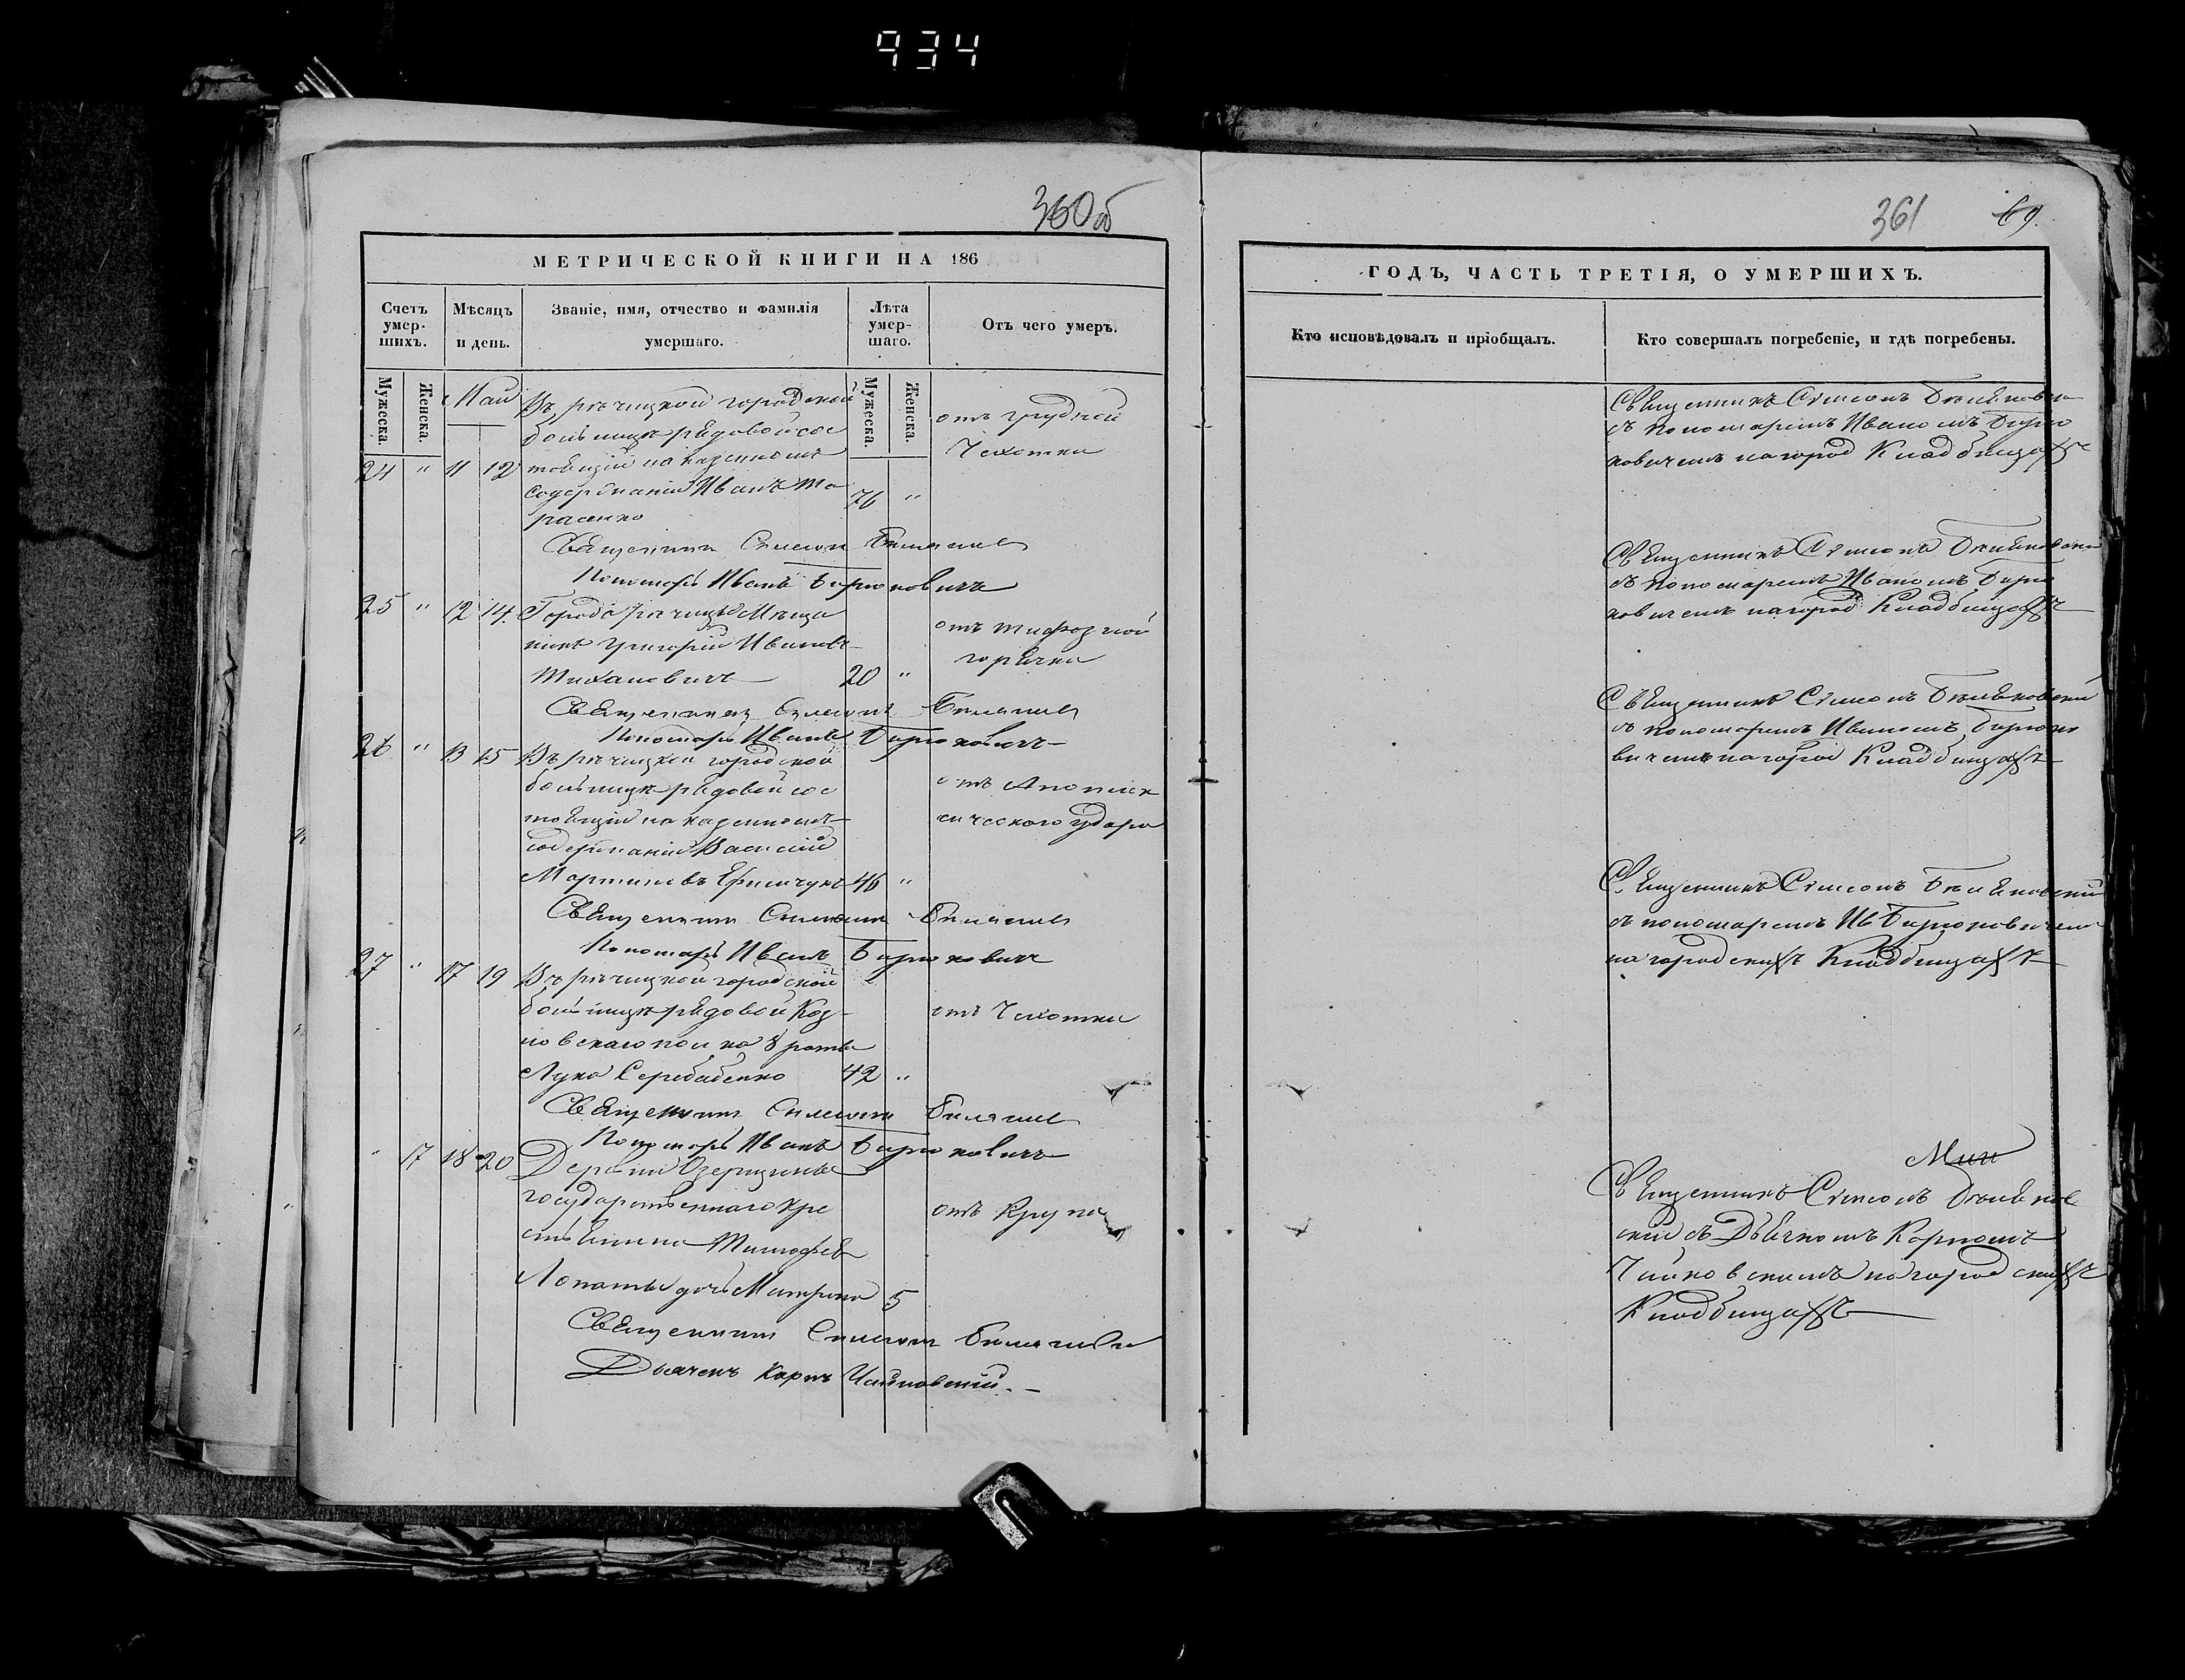 934
360об
МЕТРИЧЕСКОЙ КНИГИ НА 186
Счетъ умер-шихъ.
Мѣсяцъ и день.
Званіе, имя, отчество и фамилія умершаго.
Лѣта умер-шаго.
Отъ чего умеръ.
Мужеска.
Женска.
Мужеска.
Женска.
Май
Въ рѣчицкой городской
больницѣ рядовой сос
24 " 11 12 тоящій на казенномъ
содержаніи Иванъ Та 76 "
расенко
отъ грудной
Чахотки
Священникъ Симеонъ
Пономарь Иванъ Бирюковичъ
25 " 12 14 Города рѣчицы Мѣща
нинъ Григорій Ивановъ
20 "
отъ тифозной
горячки
Священникъ Симеонъ
Пономарь Иванъ Бирюковичъ
26 " 13 15 Въ рѣчицкой городской
больницѣ рядовой сос
тоящій на казенномъ
содержаніи Василій
Мартиновъ 46 "
отъ Апоплек
сическаго удара
Священникъ Симеонъ
Пономарь Иванъ Бирюковичъ
27 " 17 19 Въ рѣчицкой городской
больницѣ рядовой Коз
ловскаго полка 8 роты
Лука 42 "
отъ Чахотки
Священникъ Симеонъ
Пономарь Иванъ Бирюковичъ
" 17 18 20 Деревни Озерщины
государственнаго кре
стьянина Тимофея
Лопаты дочь Матрона 5
отъ Крупа
Священникъ Симеонъ
Дьячекъ Карпъ Чайковскій.
361 69.
ГОДЪ, ЧАСТЬ ТРЕТІЯ, О УМЕРШИХЪ.
Кто исповѣдовалъ и пріобщалъ.
Кто совершалъ погребеніе, и гдѣ погребены.
Священникъ Симеонъ
съ пономаремъ Иваномъ Бирю
ковичемъ на город Кладбищахъ
Священникъ Симеонъ
съ пономаремъ Иваномъ Бирю
ковичемъ на город Кладбищахъ
Священникъ Симеонъ
съ пономаремъ Иваномъ Бирюко
вичемъ на город Кладбищахъ
Священникъ Симеонъ
съ пономаремъ Ив Бирюковичемъ
на городскихъ Кладбищахъ
Священникъ Симеонъ
скій съ Дьячкомъ Карпомъ
Чайковскимъ на городскихъ
Кладбищахъ